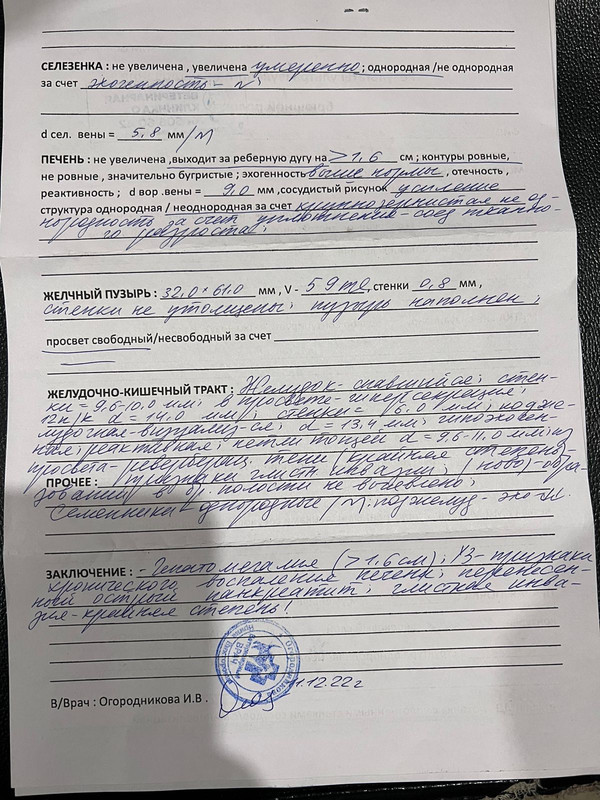 СЕЛЕЗЕНКА : не увеличена , увеличена умеренно ; однородная /не однородная
за счет эхогенность – N ;
d сел. вены = 5,8 мм /N
ПЕЧЕНЬ : не увеличена ,выходит за реберную дугу на >1,6 см ; контуры ровные,
не ровные , значительно бугристые ; эхогенность выше нормы , отечность ,
реактивность ; d вор .вены = 9,0 мм ,сосудистый рисунок усиление
структура однородная / неоднородная за счет крупнозернистая не од-
нородность за счет уплотнения соед. тканно-
го разроста!
ЖЕЛЧНЫЙ ПУЗЫРЬ : 32,0 × 61,0 мм , V - 59 ml, стенки 0,8 мм ,
стенки не утолщены ; пузырь наполнен ;
просвет свободный/несвободный за счет
ЖЕЛУДОЧНО-КИШЕЧНЫЙ ТРАКТ : Желудок - спавшийся ; стен-
ки = 9,6-10,0 мм ; в просвете - гиперсекреция ;
12п/к d = 14,0 мм ; стенки = 6,0 мм ; поджe-
лудочная - визуализ-ся ; d = 13,4 мм ; гипоэхоген-
ная, реактивная ; петли тощей d = 9,6-11,0 мм ; из
просвета - реверберац. тени (крайняя степень)
ПРОЧЕЕ : признаки глистн. инвазии ; (ново)-обра-
зований в бр. полости не выявлено ;
Семенники - однородные /N.
ЗАКЛЮЧЕНИЕ : - Гепатомегалия (>1,6 см) ; УЗ-признаки
хронического воспаления печени ; перенесен-
ный острый панкреатит ; глистная инва-
зия - крайняя степень !
В/Врач : Огородникова И.В .
1.12.22г